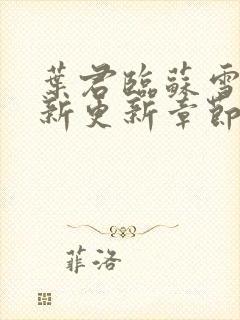 葉君臨蘇雪
新更新章節
菲洛